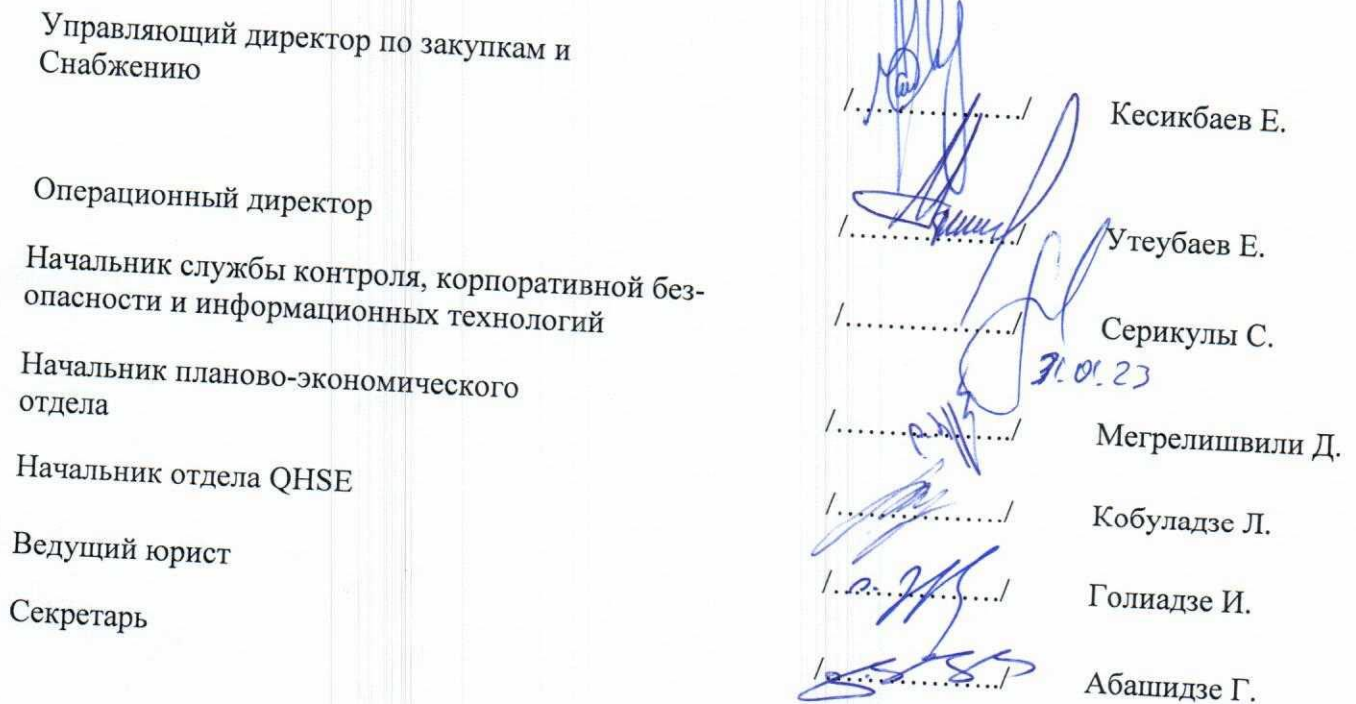 Управляющий директор по закупкам и
Снабжению
/................/ Кесикбаев Е.
Операционный директор
/................/ Утеубаев Е.
Начальник службы контроля, корпоративной без-
опасности и информационных технологий
/................/ Серикулы С.
31.01.23
Начальник планово-экономического
отдела
/................/ Мегрелишвили Д.
Начальник отдела QHSE
/................/ Кобуладзе Л.
Ведущий юрист
/................/ Голиадзе И.
Секретарь
/................/ Абашидзе Г.